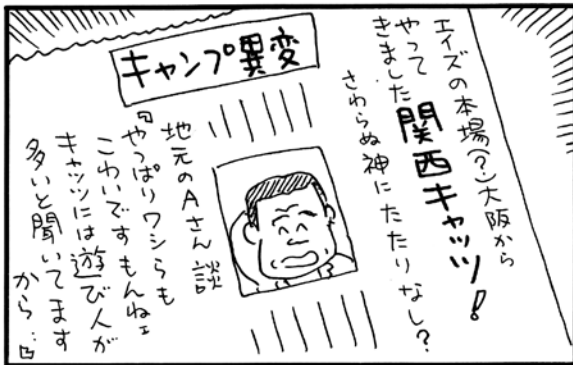 エイズの本場(?)大阪から
やって
きました関西キャッツ!
さわらぬ神にたたりなし?
キャンプ異変
地元のAさん談
『やっぱりワシらも
こわいですもんねェ
キャッツには遊び人が
多いと聞いてます
から…』